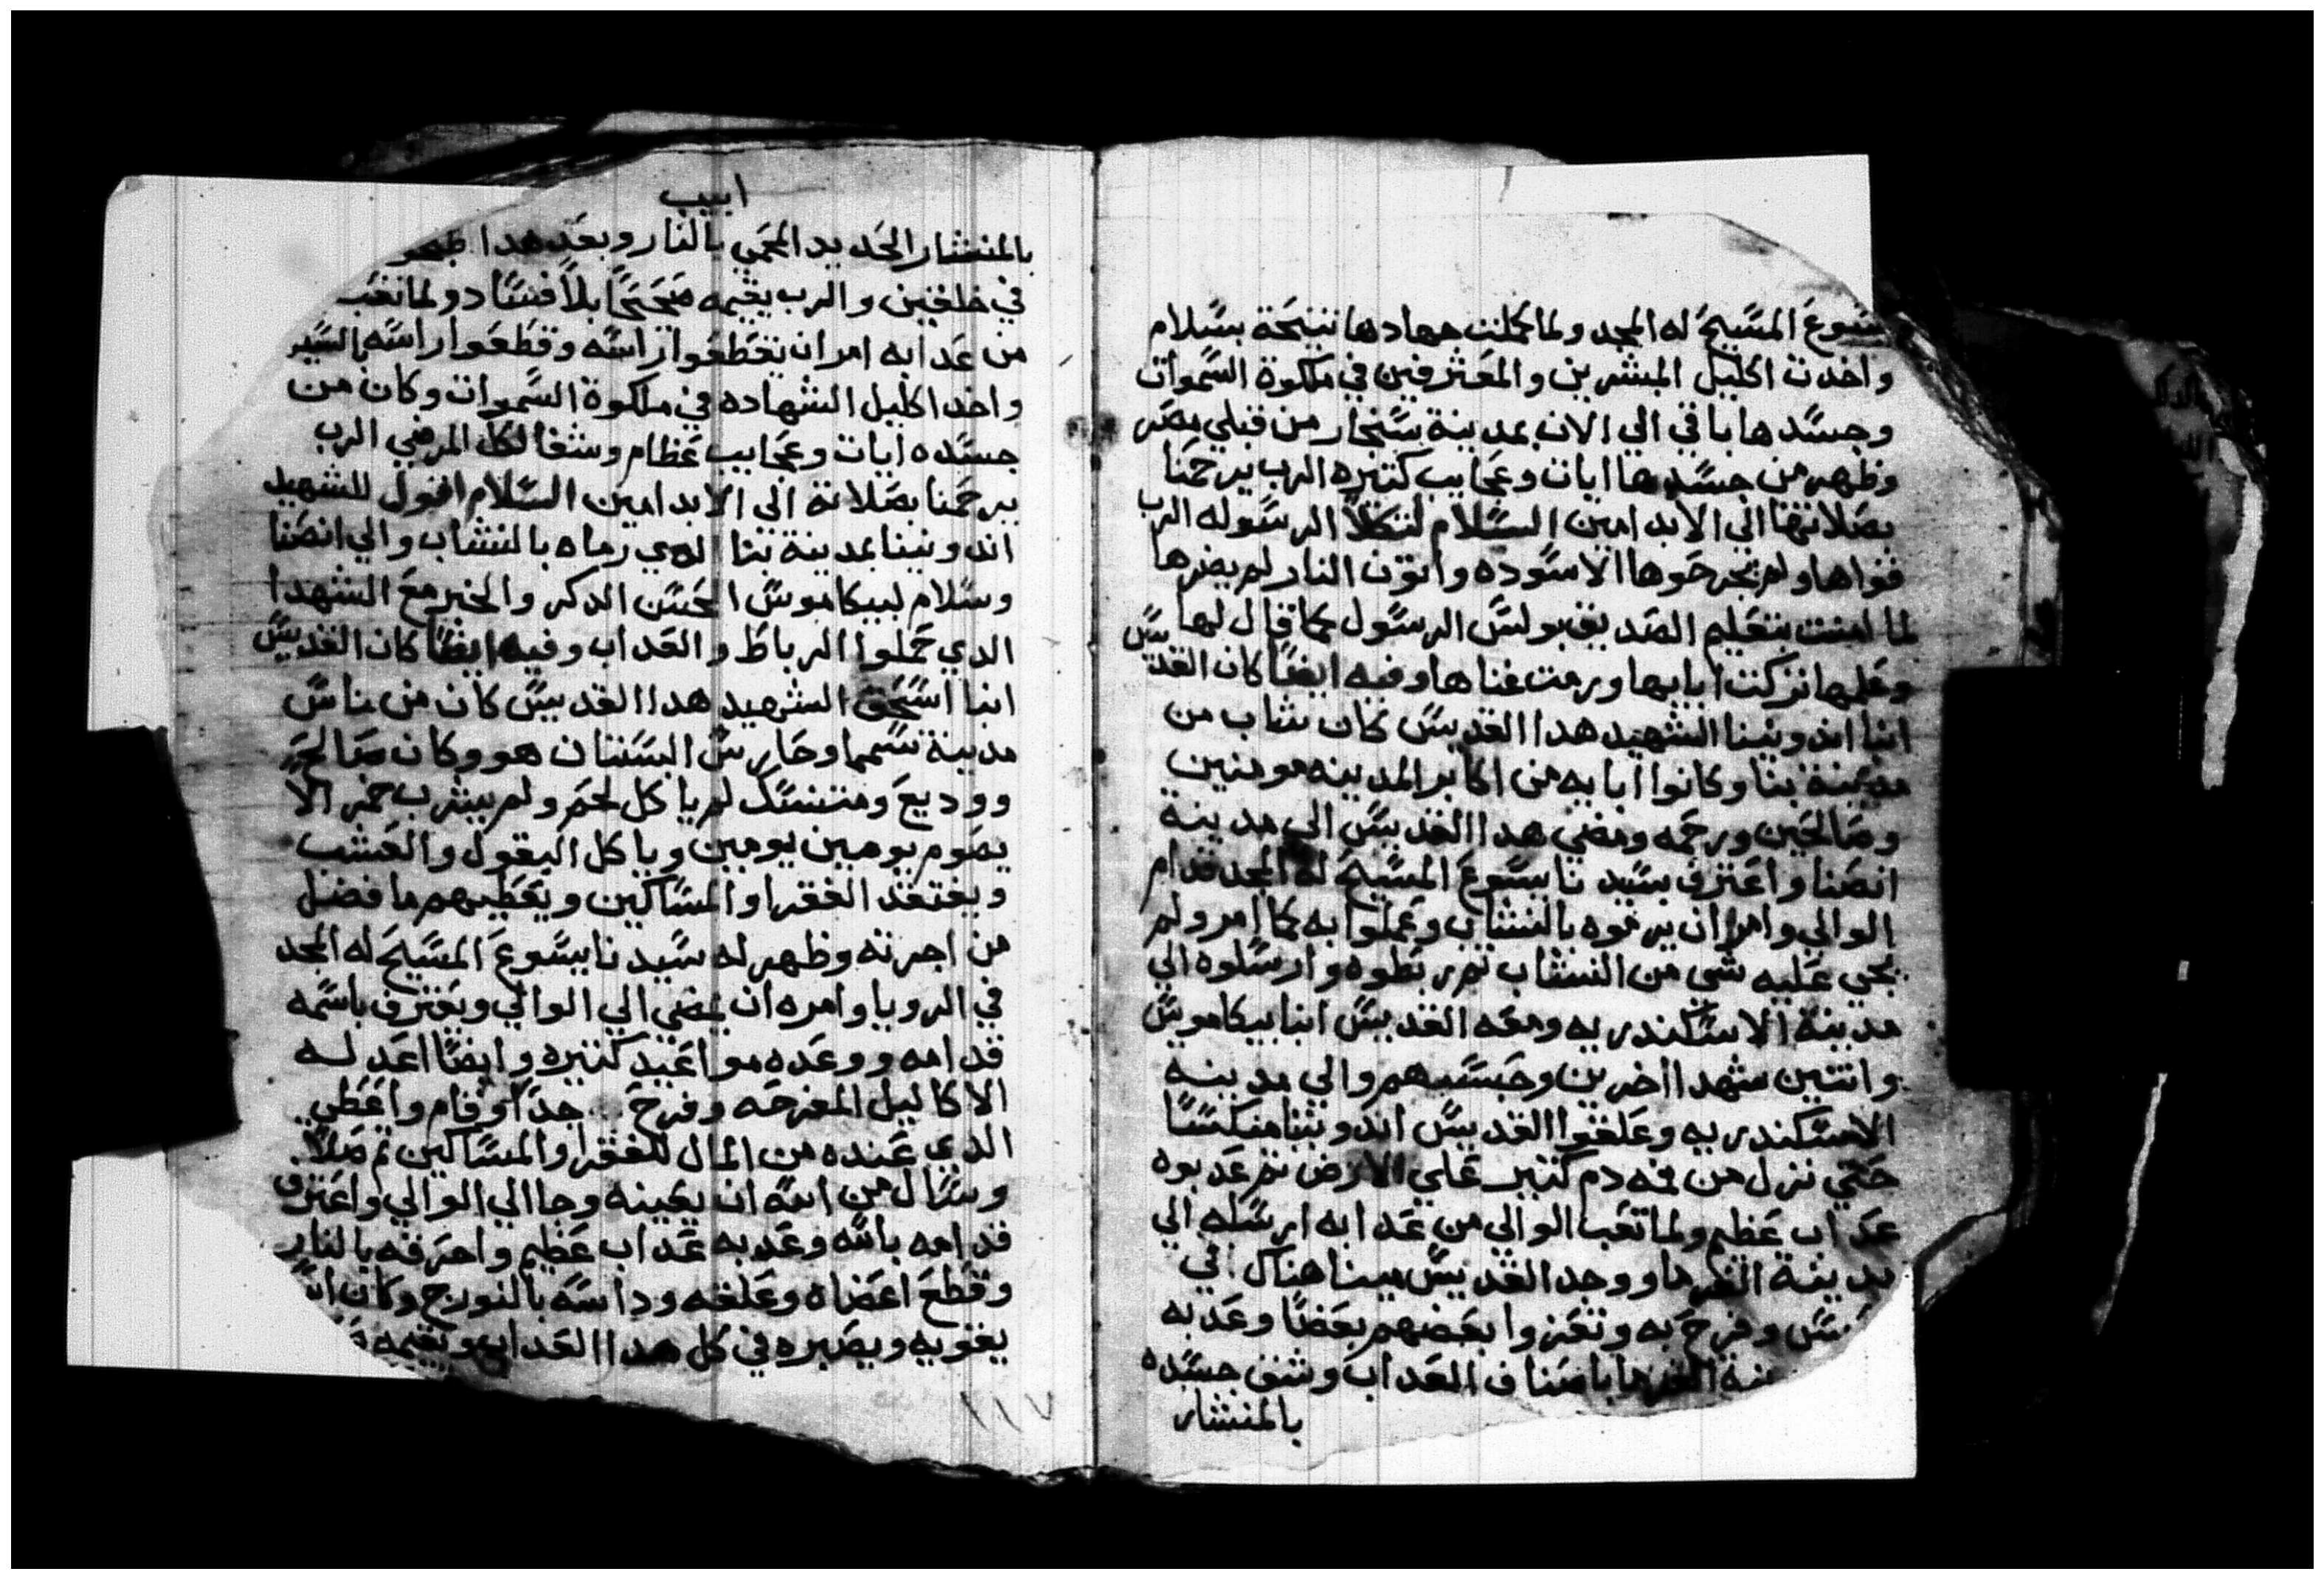 يسوع المسيح له المجد ولما كملت جهادها تنيحة بسلام
واخدت اكليل المبشرين والمعترفين في ملكوة السموات
وجسدها باقي الي الان بمدينة سنجار من قبلي مصر
وظهر من جسدها ايات وعجايب كتيره الرب يرحمنا
بصلاتها الي الابد امين السلام لتكلا الرسوله الرب
قواها ولم يجرحوها الاسوده واتون النار لم يضرها
لما امنت بتعليم الصديق بولس الرسول كما قال لها
وعلمها تركت ابايها ورمت غناها وفيه ايضا كان القديس
انبا اندونينا الشهيد هدا القديس كان شاب من
مدينة بنا وكانوا ابايه من اكابر المدينه مومنين
وصالحين ورحمه ومضي هدا القديس الي مدينة
انصنا واعترف بسيدنا يسوع المسيح له المجد قدام
الوالي وامر ان يرموه بالنشاب وعملوا به كما امر ولم
يجي عليه شي من النشاب تم ربطوه وارسلوه الي
مدينة الاسكندريه ومعه القديس انبا بيكاموس
واتنين شهدا اخرين وحبسهم والي مدينه
الاسكندريه وعلقوا القديس اندونينا منكسا
حتي نزل من فمه دم كتير علي الارض تم عدبوه
عداب عظيم ولما تعب الوالي من عدابه ارسله الي
مدينة الفرما ووجد القديس مينا هناك في
وفرح به وتعزوا بعضهم بعضا وعدبه
الفرما باصناف العداب وشق جسده
بالمنشار
ابيب
بالمنشار الحديد المحمي بالنار وبعد هدا ظهر
في خلقين والرب يقيمه صحيحا بلا فساد ولما تعب
من عدابه امر ان يقطعوا راسه وقطعوا راسه بالسيف
واخد اكليل الشهاده في ملكوة السموات وكان من
جسده ايات وعجايب عظام وشفا لكل المرضي الرب
يرحمنا بصلاته الي الابد امين السلام اقول للشهيد
اندونينا بمدينة بنا الدي رماه بالنشاب والي انصنا
وسلام لبيكاموس الحسن الدكر والخبر مع الشهدا
الدي حملوا الرباط والعداب وفيه ايضا كان القديس
انبا اسحق الشهيد هدا القديس كان من ناس
مدينة شمما وحارس البستان هو وكان صالح
ووديع ومتنسك لم ياكل لحم ولم يشرب خمر الا
يصوم يومين يومين وياكل البقول والعشب
ويفتقد الفقرا والمساكين ويعطيهم ما فضل
من اجرته وظهر له سيدنا يسوع المسيح له المجد
في الرويا وامره ان يمضي الي الوالي ويعترف باسمه
قدامه ووعده مواعيد كتيره وايضا اعد له
الاكاليل المفرحه وفرح جدا وقام واعطي
الدي عنده من المال للفقرا والمساكين تم صلا
وسال من الله ان يعينه وجا الي الوالي واعترف
قدامه بالله وعدبه عداب عظيم واحرقه بالنار
وقطع اعضاه وعلقه وداسه بالنورج وكان الله
يقويه ويصبره في كل هدا العداب ويقيمه
١١٧